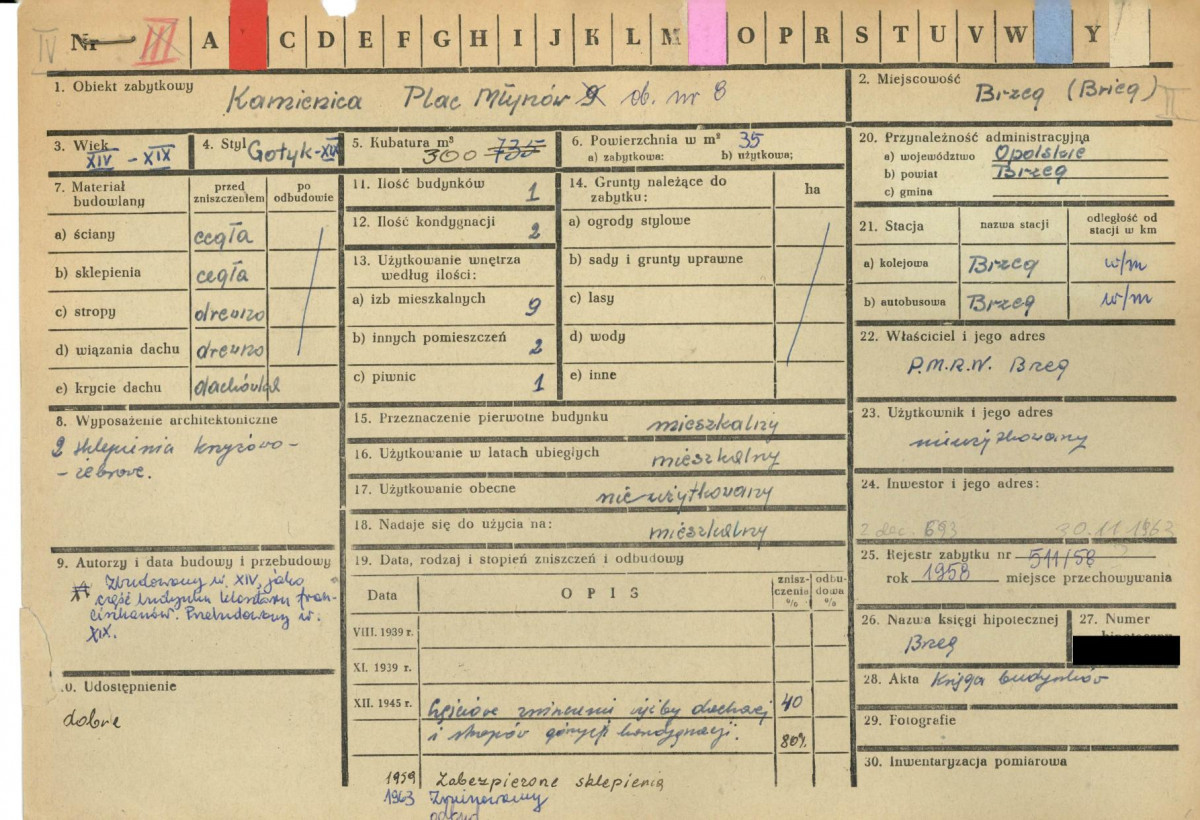 IV Nr III A C D E F G H I J K L M O P R S T U V W Y
1. Obiekt zabytkowy
Kamienica Plac Młynów 9 ob. nr 8
2. Miejscowość
Brzeg (Brieg)
II
3. Wiek
XIV - XIX
4. Styl Gotyk-XIX
5. Kubatura m³
300 735
6. Powierzchnia w m² 35
a) zabytkowa: b) użytkowa;
20. Przynależność administracyjna
a) województwo Opolskie
b) powiat Brzeg
c) gmina
7. Materiał budowlany
przed zniszczeniem
po odbudowie
a) ściany cegła
b) sklepienia cegła
c) stropy drewno
d) wiązania dachu drewno
e) krycie dachu dachówka
11. Ilość budynków 1
12. Ilość kondygnacji 2
13. Użytkowanie wnętrza
według ilości:
a) izb mieszkalnych 9
b) innych pomieszczeń 2
c) piwnic 1
14. Grunty należące do
zabytku:
ha
a) ogrody stylowe
b) sady i grunty uprawne
c) lasy
d) wody
e) inne
21. Stacja
nazwa stacji
odległość od
stacji w km
a) kolejowa Brzeg w/m
b) autobusowa Brzeg w/m
22. Właściciel i jego adres
P.M.R.N. Brzeg
8. Wyposażenie architektoniczne
2 sklepienia krzyżowo-
- żebrowe.
15. Przeznaczenie pierwotne budynku mieszkalny
16. Użytkowanie w latach ubiegłych mieszkalny
17. Użytkowanie obecne nie użytkowany
18. Nadaje się do użycia na: mieszkalny
23. Użytkownik i jego adres
nieużytkowany
24. Inwestor i jego adres:
2 dec. 693 30.11.1962
9. Autorzy i data budowy i przebudowy
Zbudowany w. XIV, jako
część budynku klasztoru fran-
ciszkanów. Przebudowany w.
XIX.
10. Udostępnienie
dobre
19. Data, rodzaj i stopień zniszczeń i odbudowy
Data
OPIS
znisz-
czenia
%
odbu-
dowa
%
VIII. 1939 r.
XI. 1939 r.
XII. 1945 r. Częściowe zniszczenie więźby dachowej 40
i stropów górnych kondygnacji. 80%
1959 Zabezpieczone sklepienia
1963
25. Rejestr zabytku nr 511/58
rok 1958 miejsce przechowywania
26. Nazwa księgi hipotecznej
Brzeg
27. Numer
28. Akta Księga budynków
29. Fotografie
30. Inwentaryzacja pomiarowa